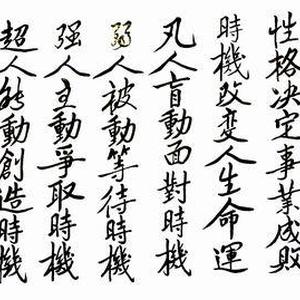 性格決定事業成敗
時機改變人生命運
凡人盲動面對時機
弱人被動等待時機
强人主動爭取時機
超人能動創造時機